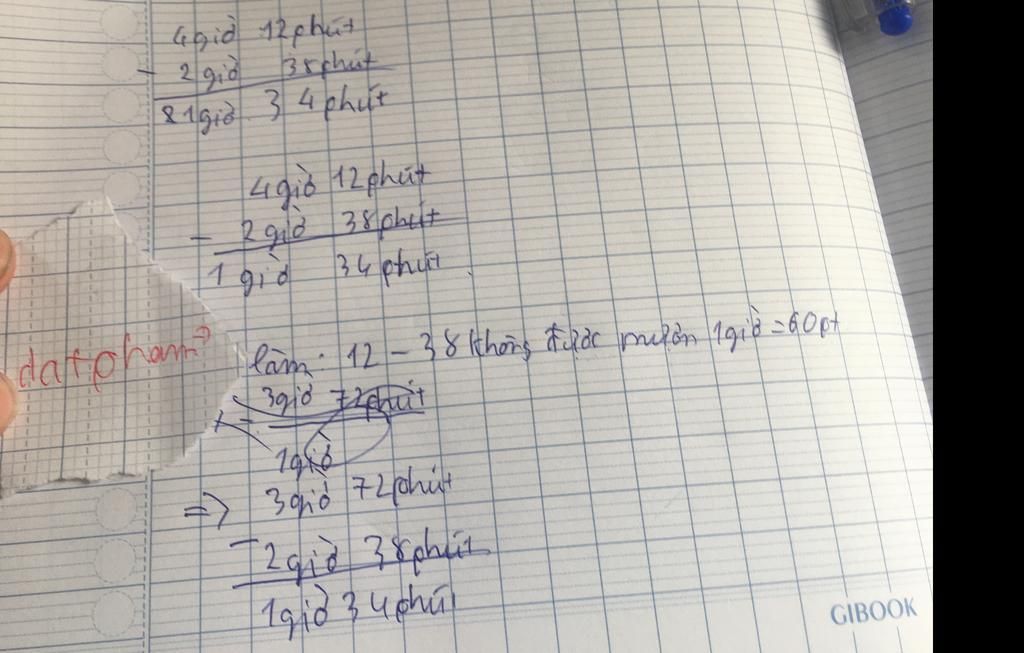 4giờ 12phút
- 2giờ 38phút
81giờ 34phút
4giờ 12phút
- 2giờ 38phút
1 giờ 34phút
datpham
làm: 12 - 38 không được mượn 1giờ = 60pt
3giờ 72phút
1giờ
=> 3giờ 72phút
- 2giờ 38phút
1giờ 34phút
GIBOOK